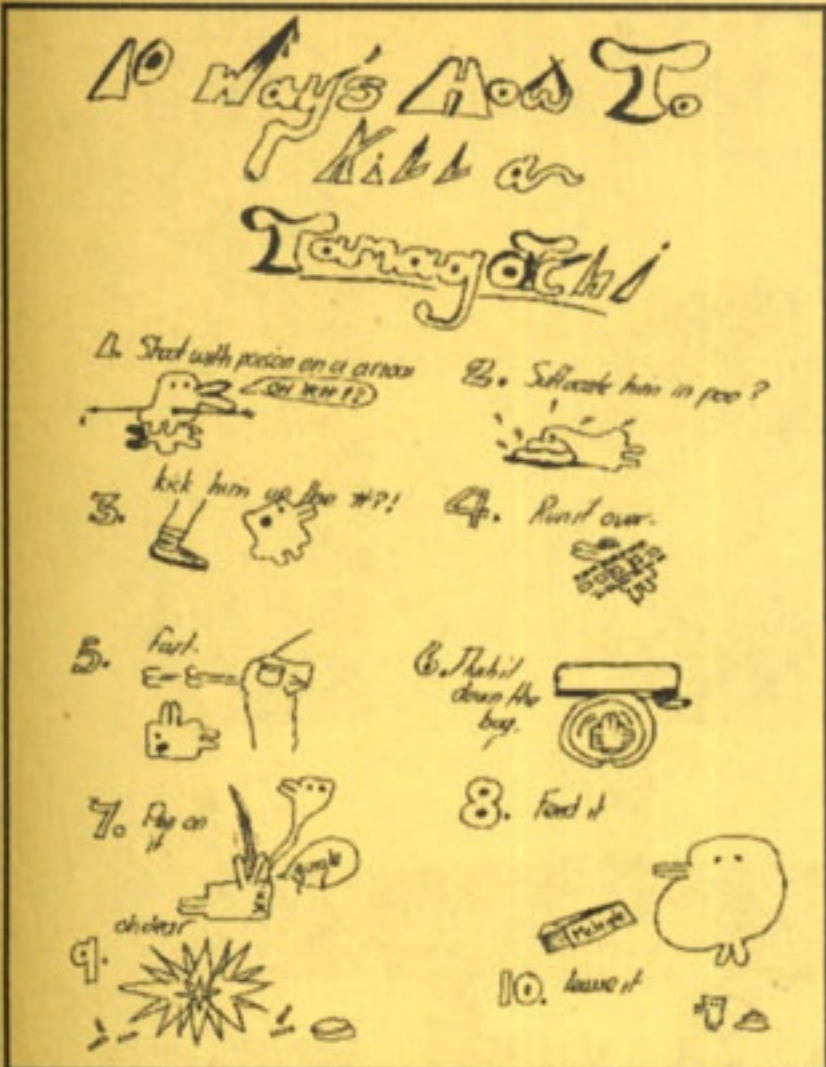 10 Way's How To
Kill a
Tamagotchi
1. Shoot with poison on a arrow
2. Suffocate him in poo?
3. kick him up the #?!
4. Run it over.
5. Fart.
6. 
down the
bog.
7. Pee on
it
gurgle
8. Feed it
9. oh dear
10. leave it